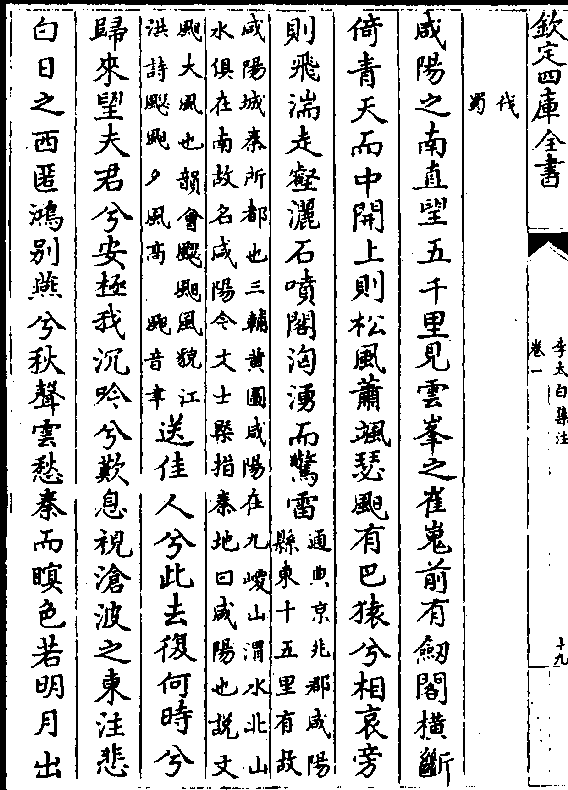 欽定四庫全書
李太白集注
卷一
十九
伐
蜀
咸陽之南直望五千里見雲峯之崔嵬前有劒閣橫斷
倚青天而中開上則松風蕭颯瑟䬍有巴猿兮相哀旁
則飛湍走壑灑石噴閣洶湧而驚雷
通典京兆郡咸陽
縣東十五里有故
咸陽城秦所都也三輔黄圖咸陽在九嵕山渭水北山
水俱在南故名咸陽今文士槩指秦地曰咸陽也説文
䬍大風也韻會䬍䬍風貌江
洪詩䬍䬍夕風髙 䬍音聿
送佳人兮此去復何時兮
歸來望夫君兮安極我沉吟兮歎息視滄波之東注悲
白日之西匿鴻别燕兮秋聲雲愁秦而暝色若明月出